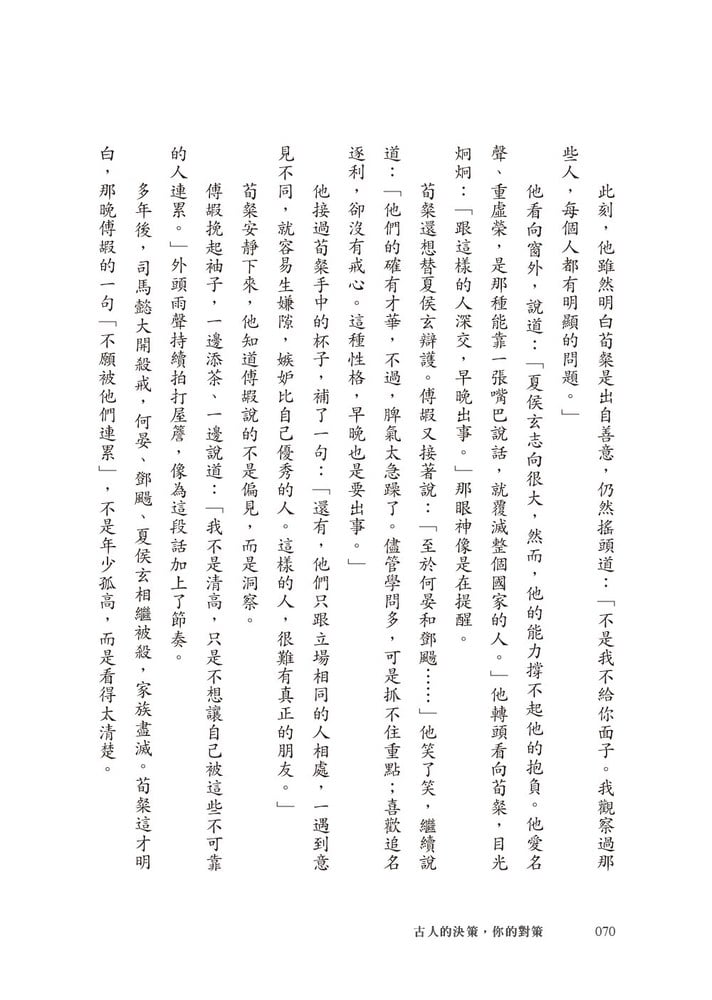 此刻，他雖然明白荀粲是出自善意，仍然搖頭道：「不是我不給你面子。我觀察過那
些人，每個人都有明顯的問題。」
他看向窗外，說道：「夏侯玄志向很大，然而，他的能力撐不起他的抱負。他愛名
聲、重虛榮，是那種能靠一張嘴巴說話，就覆滅整個國家的人。」他轉頭看向荀粲，目光
炯炯：「跟這樣的人深交，早晚出事。」那眼神像是在提醒。
荀粲還想替夏侯玄辯護。傅嘏又接著說：「至於何晏和鄧颺……」他笑了笑，繼續說
道：「他們的確有才華，不過，脾氣太急躁了。儘管學問多，可是抓不住重點；喜歡追名
逐利，卻沒有戒心。這種性格，早晚也是要出事。」
他接過荀粲手中的杯子，補了一句：「還有，他們只跟立場相同的人相處，一遇到意
見不同，就容易生嫌隙，嫉妒比自己優秀的人。這樣的人，很難有真正的朋友。」
荀粲安靜下來，他知道傅嘏說的不是偏見，而是洞察。
傅嘏挽起袖子，一邊添茶、一邊說道：「我不是清高，只是不想讓自己被這些不可靠
的人連累。」外頭雨聲持續拍打屋簷，像為這段話加上了節奏。
多年後，司馬懿大開殺戒，何晏、鄧颺、夏侯玄相繼被殺，家族盡滅。荀粲這才明
白，那晚傅嘏的一句「不願被他們連累」，不是年少孤高，而是看得太清楚。
古人的決策，你的對策 070